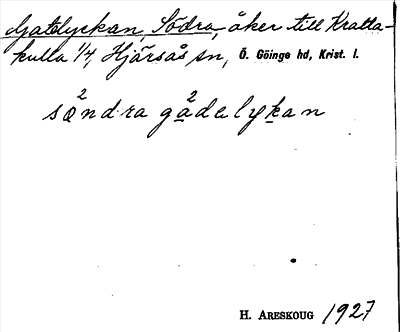 Gatelyckan, Södra, åker till Kratta-
kulla 1/4, Hjärsås sn, Ö. Göinge hd, Krist. l.
sö̱²ndra gå̱²delyḵan
H. ARESKOUG 1927